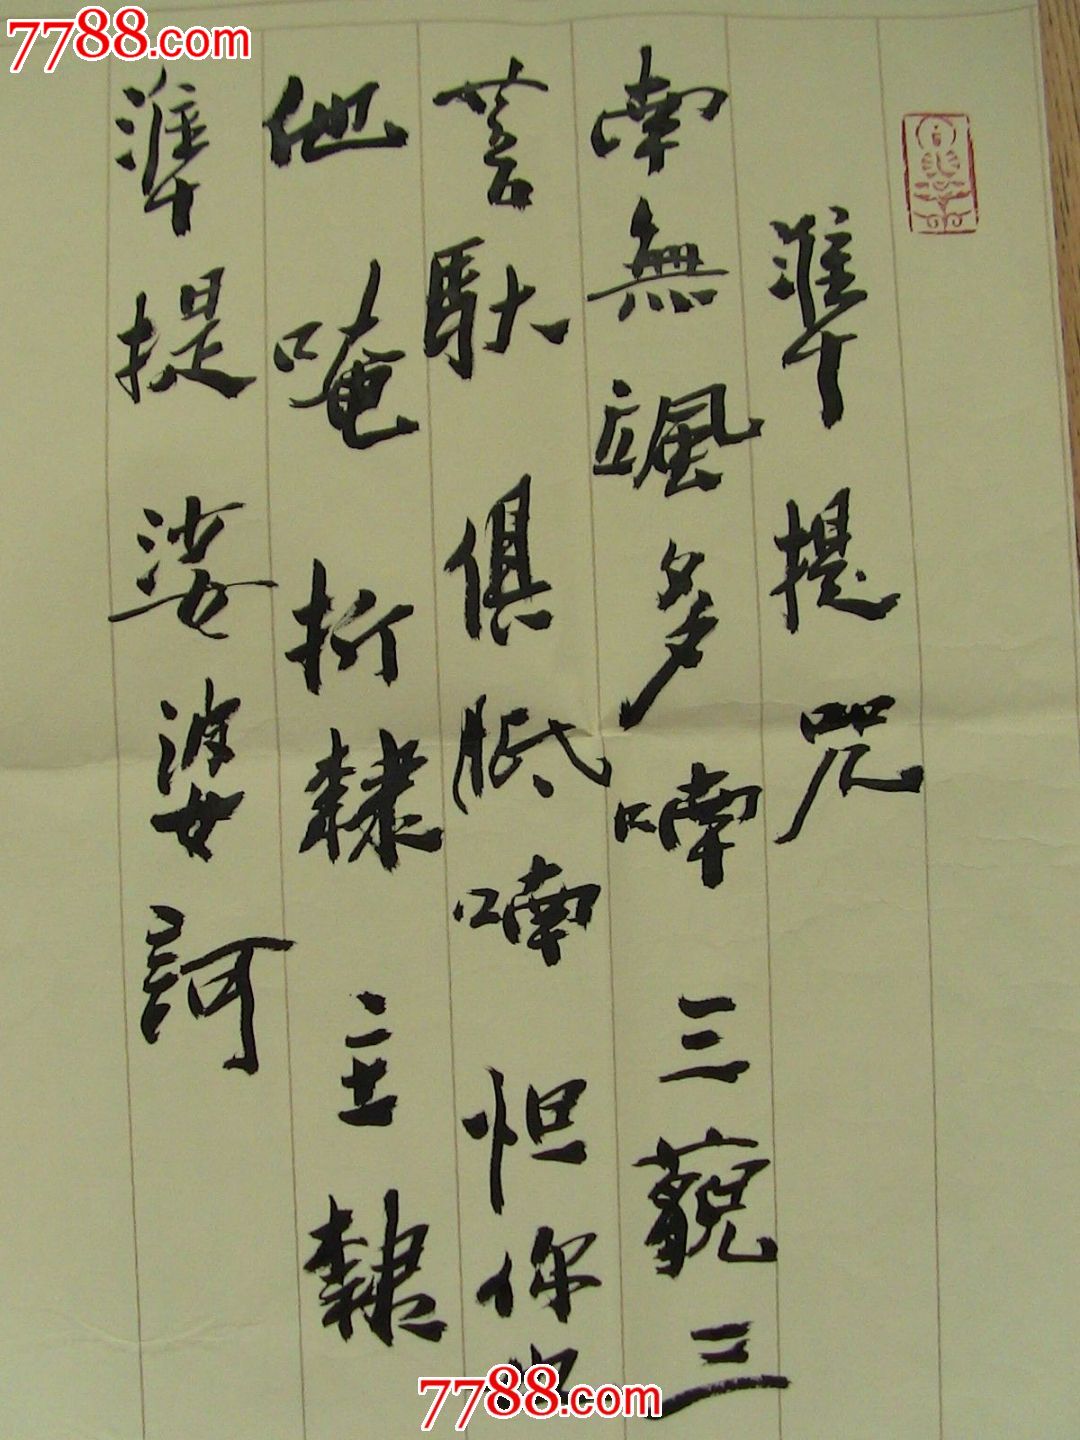 7788.com
準提咒
南無颯多喃三藐三
菩馱俱胝喃怛你
他唵折隸主隸
準提娑婆訶
7788.com